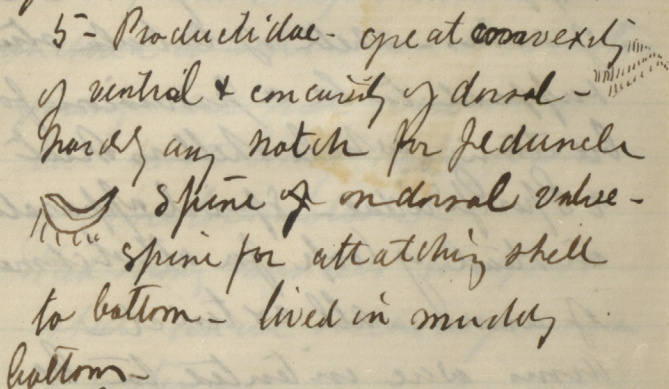 5 - Productidae - great convexity
of ventral & concavity of dorsal -
hardly any notch for peduncle
Spine of on dorsal valve -
spine for attatching shell
to bottom - lived in muddy
bottom -